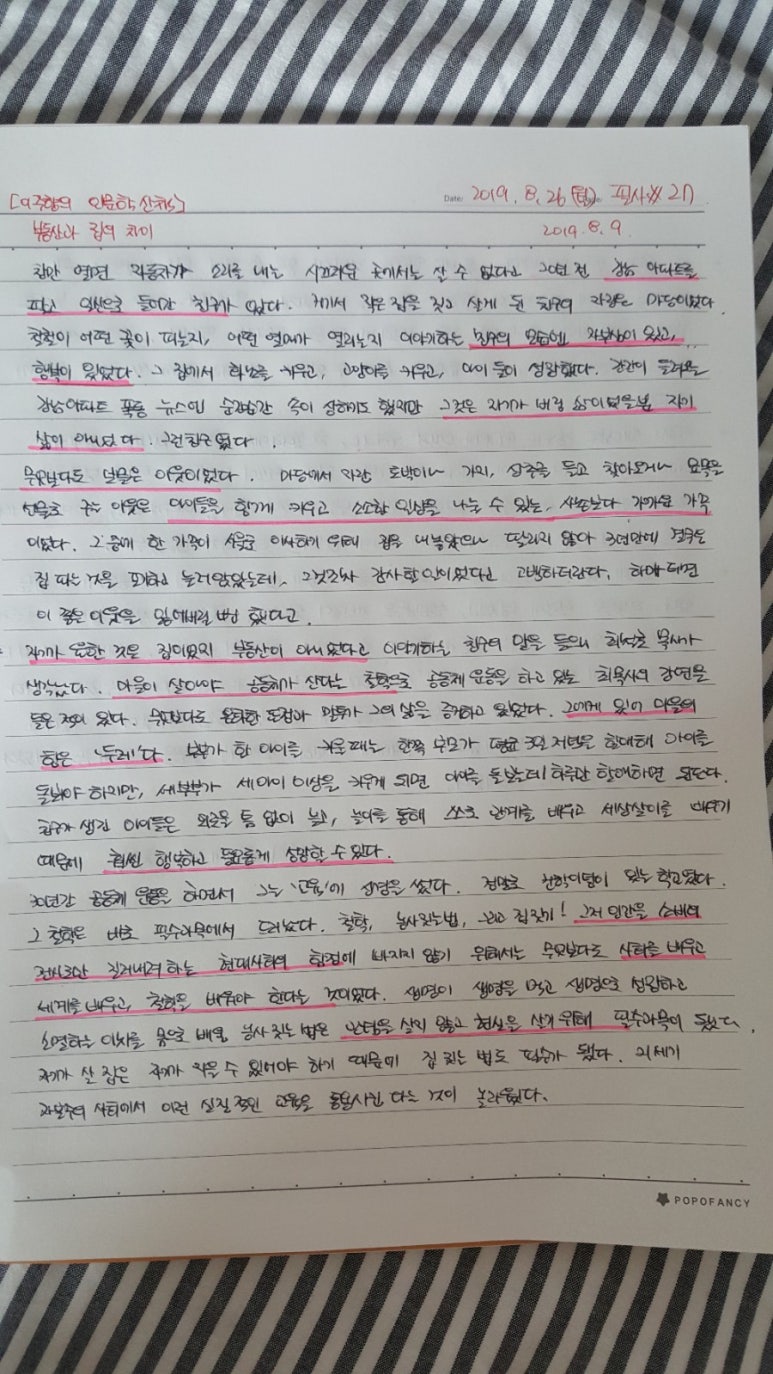 [이주향의 인문학 산책]
Date. 2019. 8. 26 (월) 필사 # 27
부동산과 집의 차이
2019. 8. 9.
창만 열면 자동차가 소리를 내는 시끄러운 곳에서는 살 수 없다고 20년 전 강남 아파트를
팔고 일산으로 들어간 친구가 있다. 거기서 작은 집을 짓고 살게 된 친구의 자랑은 마당이었다.
철철이 어떤 꽃이 피는지, 어떤 열매가 열리는지 이야기하는 친구의 모습엔 자부심이 있고,
행복이 있었다. 그 집에서 화초를 키우고, 고양이를 키우고, 아이들이 성장했다. 간간이 들려오는
강남아파트 폭등 뉴스엔 순간순간 속이 상하기도 했지만 그것은 자기가 버린 삶이었을뿐 자기
삶이 아니었다. 그런 친구였다.
무엇보다도 보물은 이웃이었다. 마당에서 자란 호박이나 가지, 상추를 들고 찾아오거나 묘목을
선물로 주는 이웃은 아이들을 함께 키우고 소소한 일상을 나눌 수 있는, 사촌보다 가까운 가족
이었다. 그 중에 한 가족이 서울로 이사하기 위해 집을 내놓았으나 팔리지 않아 3년만에 결국은
집 파는 것을 포기하고 눌러앉았는데, 그것조차 감사한 일이었다고 고백하더란다. 하마터면
이 좋은 이웃을 잃어버릴 뻔 했다고.
자기가 원한 것은 집이었지 부동산이 아니었다고 이야기하는 친구의 말을 들으니 최철호 목사가
생각났다. 마을이 살아야 공동체가 산다는 철학으로 공동체 운동을 하고 있는 최목사의 강연을
들은 적이 있다. 무엇보다도 온화한 표정과 말투가 그의 삶을 증거하고 있었다. 그에게 있어 마을의
힘은 '두레'다. 부부가 한 아이를 키울 때는 한쪽 부모가 평균 3일 저녁은 할애해 아이를
돌봐야 하지만, 세 부부가 세 아이 이상을 키우게 되면 아이를 돌보는데 하루만 할애하면 된단다.
친구가 생긴 아이들은 외로울 틈 없이 놀고, 놀이를 통해 스스로 관계를 배우고 세상살이를 배우기
때문에 훨씬 행복하고 풍요롭게 성장할 수 있다.
30년간 공동체 운동을 하면서 그는 '교육'에 신경을 썼다. 정말로 철학이념이 있는 학교였다.
그 철학은 바로 필수과목에서 드러났다. 철학, 농사짓는법, 그리고 집짓기! 그저 인간을 소비의
전사로만 길러내려 하는 현대사회의 함정에 빠지지 않기 위해서는 무엇보다도 사회를 배우고
세계를 배우고, 철학을 배워야 한다는 것이었다. 생명이 생명을 먹고 생명으로 성장하고
소멸하는 이치를 몸으로 배울 농사 짓는 법은 관념을 살지 않고 현실을 살기 위해 필수과목이 됐다.
자기가 살 집은 자기가 지을 수 있어야 하기 때문에 집 짓는 법도 필수가 됐다. 21세기
자본주의 사회에서 이런 실질적인 교육을 통용시킨 다는 것이 놀라웠다.
POPOFANCY